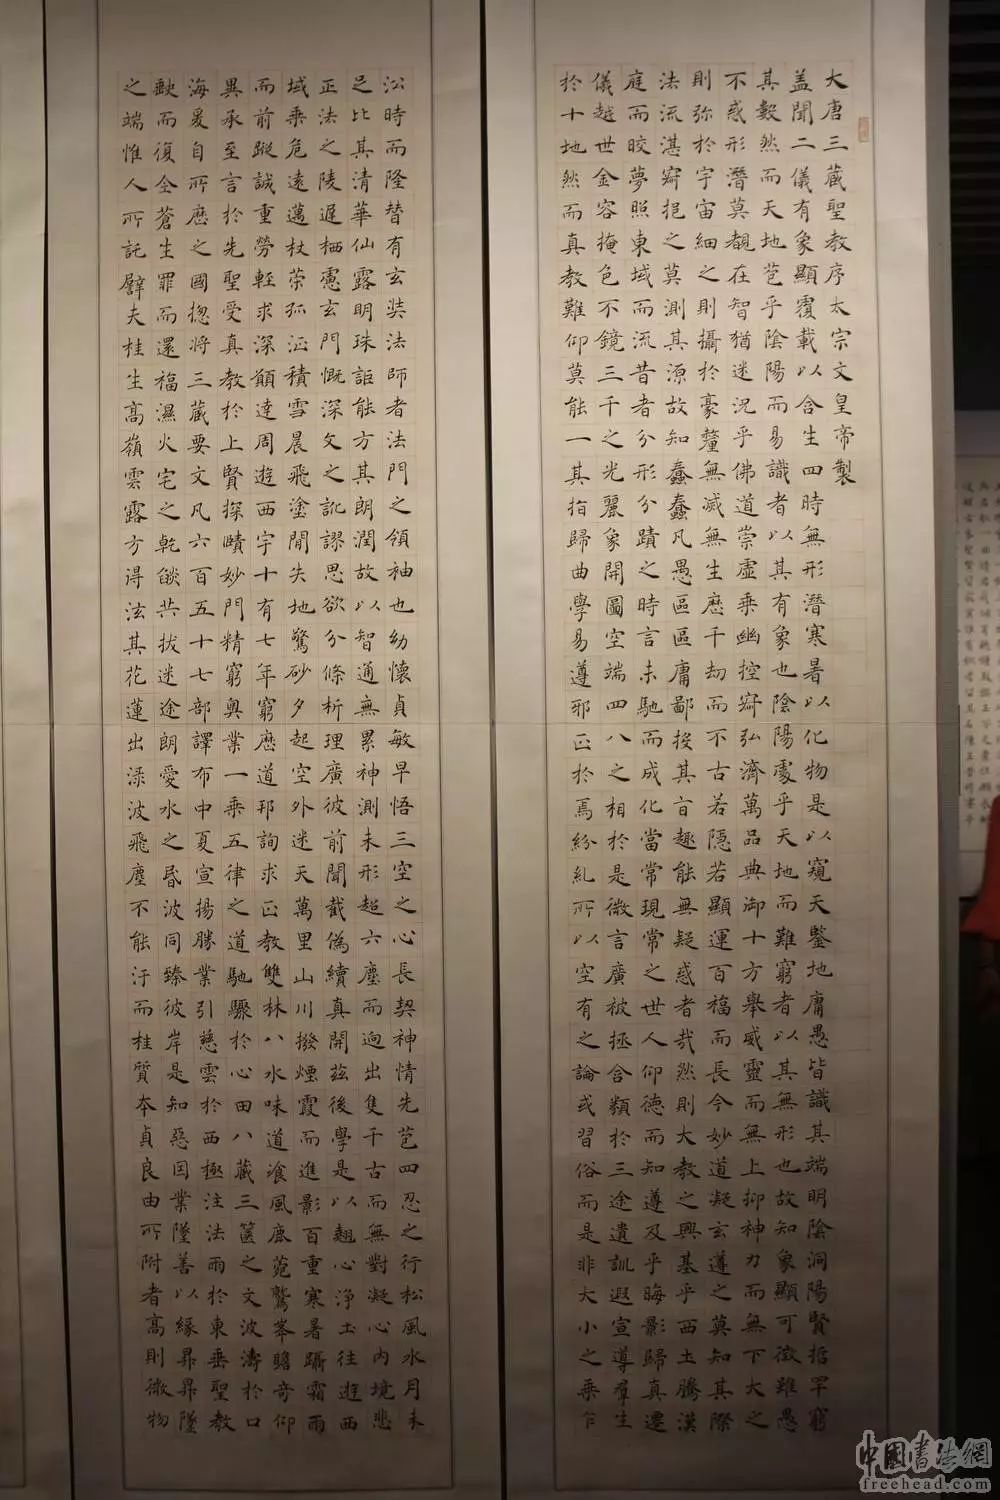 大唐三藏聖教序太宗文皇帝製
盖聞二儀有象顯覆載以含生四時無形潛寒暑以化物是以窺天鑒地庸愚皆識其端明陰洞陽賢哲罕窮
其數然而天地苞乎陰陽而易識者以其有象也陰陽處乎天地而難窮者以其無形也故知象顯可徵雖愚
不惑形潛莫覩在智猶迷況乎佛道崇虛乘幽控寂弘濟萬品典御十方舉威靈而無上抑神力而無下大之
則弥於宇宙細之則攝於豪釐無滅無生歷千劫而不古若隱若顯運百福而長今妙道凝玄遵之莫知其際
法流湛寂挹之莫測其源故知蠢蠢凡愚區區庸鄙投其旨趣能無疑惑者哉然則大教之興基乎西土騰漢
庭而皎夢照東域而流昔者分形分蹟之時言未馳而成化當常現常之世人仰德而知遵及乎晦影歸真遷
儀越世金容掩色不鏡三千之光麗象開圖空端四八之相於是微言廣被拯含類於三途遺訓遐宣導羣生
於十地然而真教難仰莫能一其指歸曲學易遵邪正於焉紛糺所以空有之論或習俗而是非大小之乘乍
沿時而隆替有玄奘法師者法門之領袖也幼懷貞敏早悟三空之心長契神情先苞四忍之行松風水月未
足比其清華仙露明珠詎能方其朗潤故以智通無累神測未形超六塵而迥出隻千古而無對凝心內境悲
正法之陵遲栖慮玄門慨深文之訛謬思欲分條析理廣彼前聞截偽續真開茲後學是以翹心淨土往遊西
域乘危遠邁杖策孤征積雪晨飛塗閒失地驚砂夕起空外迷天萬里山川撥煙霞而進影百重寒暑躡霜雨
而前蹤誠重勞輕求深願達周遊西宇十有七年窮歷道邦詢求正教雙林八水味道飡風鹿菀鷲峯瞻奇仰
異承至言於先聖受真教於上賢探賾妙門精窮奧業一乘五律之道馳驟於心田八藏三篋之文波濤於口
海爰自所歷之國揔將三藏要文凡六百五十七部譯布中夏宣揚勝業引慈雲於西極注法雨於東垂聖教
缺而復全蒼生罪而還福濕火宅之乾燄共拔迷途朗愛水之昏波同臻彼岸是知惡因業墜善以緣昇昇墜
之端惟人所託譬夫桂生高嶺雲露方得泫其花蓮出淥波飛塵不能汙而桂質本貞良由所附者高則微物
中國書法網
freehead.com